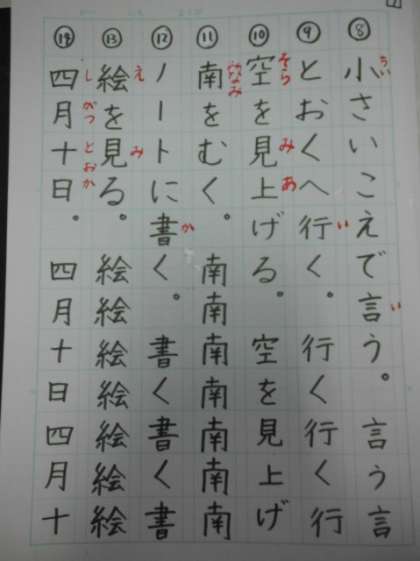 ⑧ 小さいこえで言う。言う言
⑨ とおくへ行く。行く行く行
⑩ 空を見上げる。空を見上げ
⑪ 南をむく。南南南南南南南
⑫ ノートに書く。書く書く書
⑬ 絵を見る。絵絵絵絵絵絵絵
⑭ 四月十日。四月十日四月十
ちい
い
い
そら
み
あ
みなみ
か
え
み
し
がつ
とおか